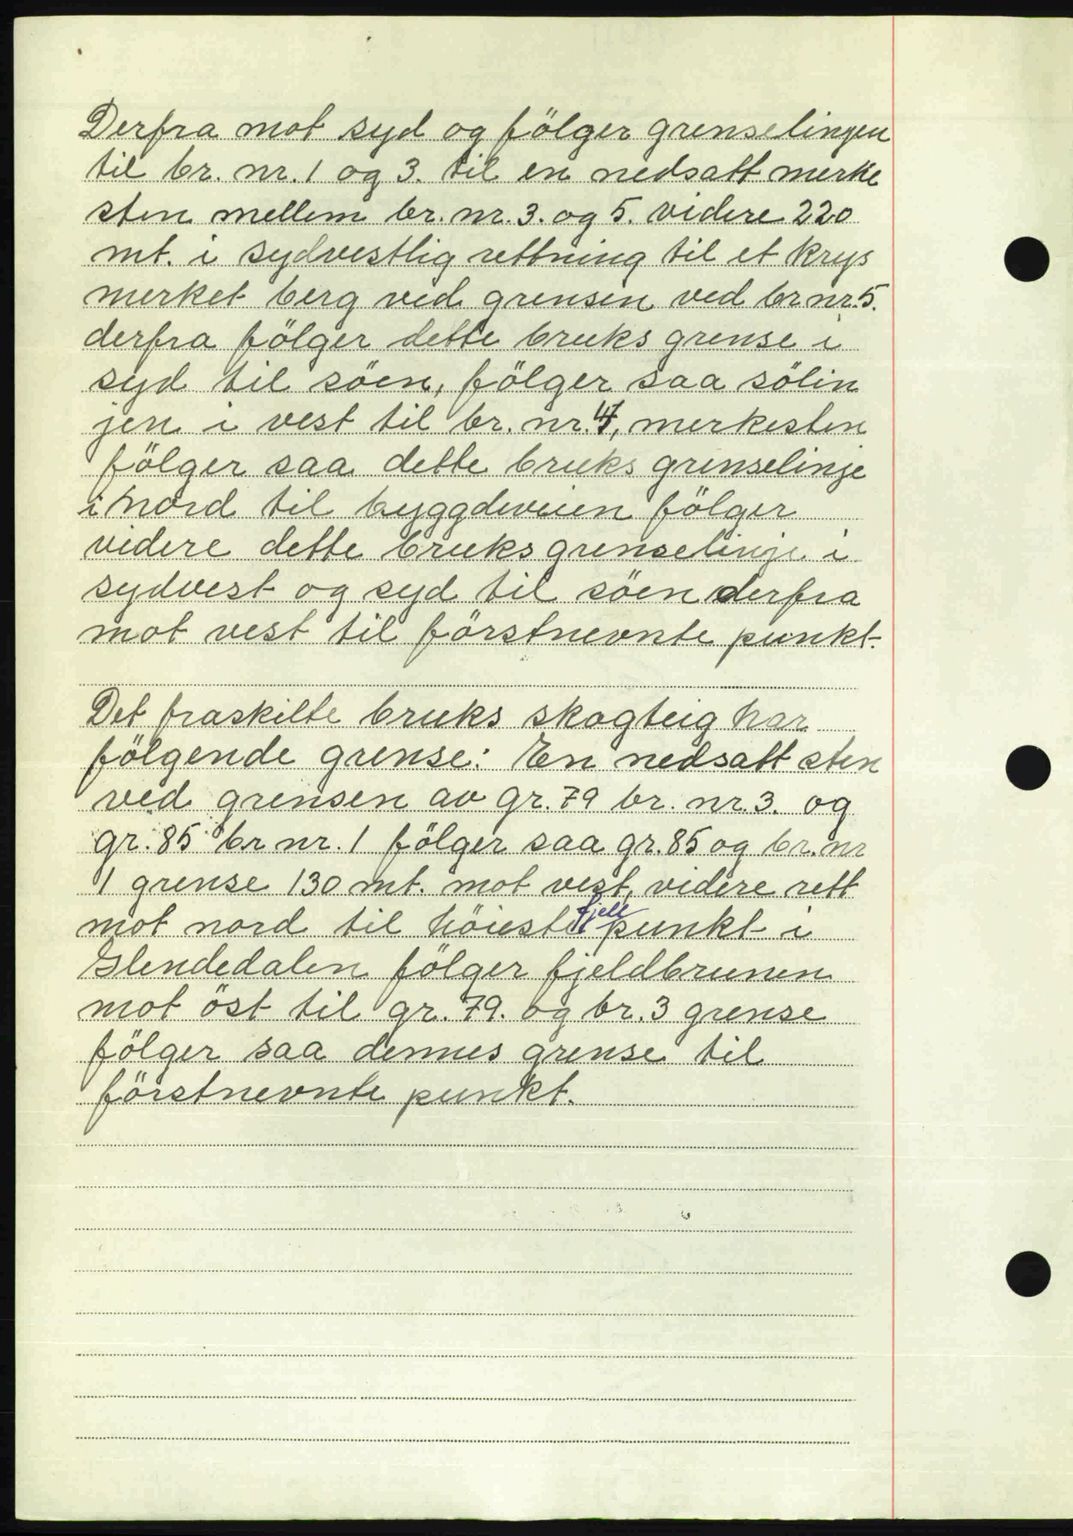 Derfra mot syd og fölger grenselinjen
til br. nr. 1 og 3. til en nedsatt merke
sten mellem br. nr. 3. og 5. videre 220
mt. i sydvestlig rettning til et krys
merket berg ved grensen ved br nr. 5.
derfra fölger dette bruks grense i
syd til söen, fölger saa sölin
jen i vest til br. nr. 4, merkesten
fölger saa dette bruks grenselinje
i nord til byggdeveien fölger
videre dette bruks grenselinje i
sydvest og syd til söen derfra
mot vest til förstnevnte punkt.
Det fraskilte bruks skogteig har
fölgende grense: En nedsatt sten
ved grensen av gr. 79 br. nr. 3. og
gr. 85 br nr. 1 fölger saa gr. 85 og br. nr
1 grense 130 mt. mot vest, videre rett
mot nord til höieste fjell punkt i
Glendedalen fölger fjeldbrunen
mot öst til gr. 79. og br. 3 grense
fölger saa dennes grense til
förstnevnte punkt.